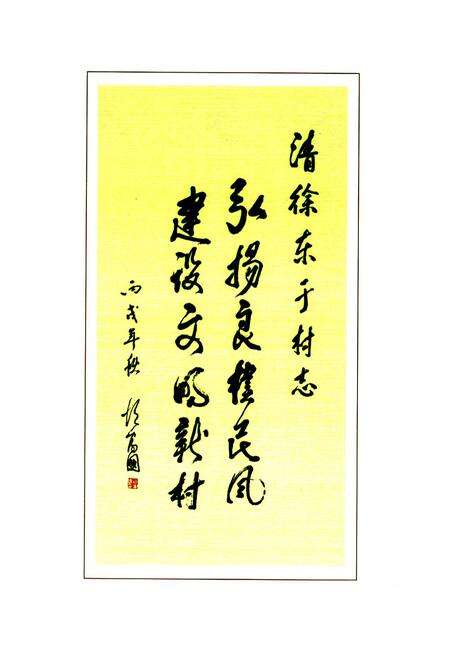 清徐东于村志
弘揚良樸民风
建设文明新村
丙戌年秋